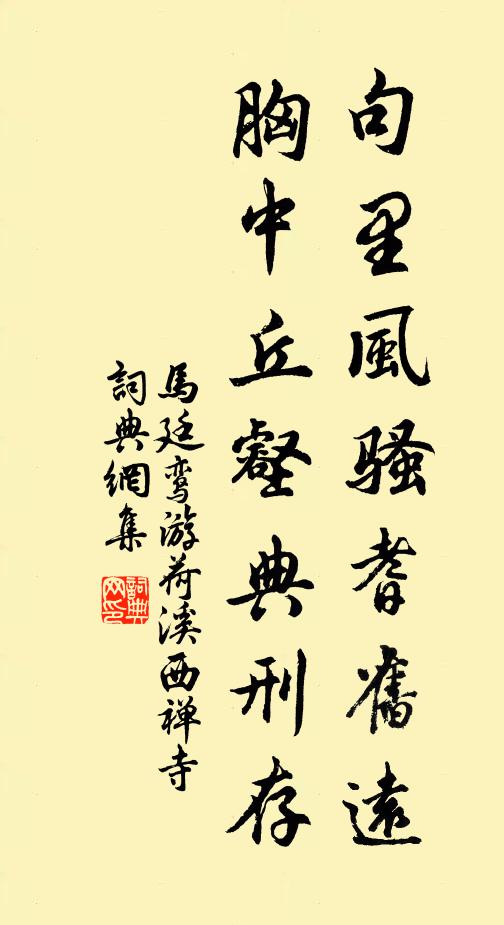 句里風騷耆舊遠
胸中丘壑典刑存
馬廷鸾游荷溪西禅寺
詞典網集
詞典網印